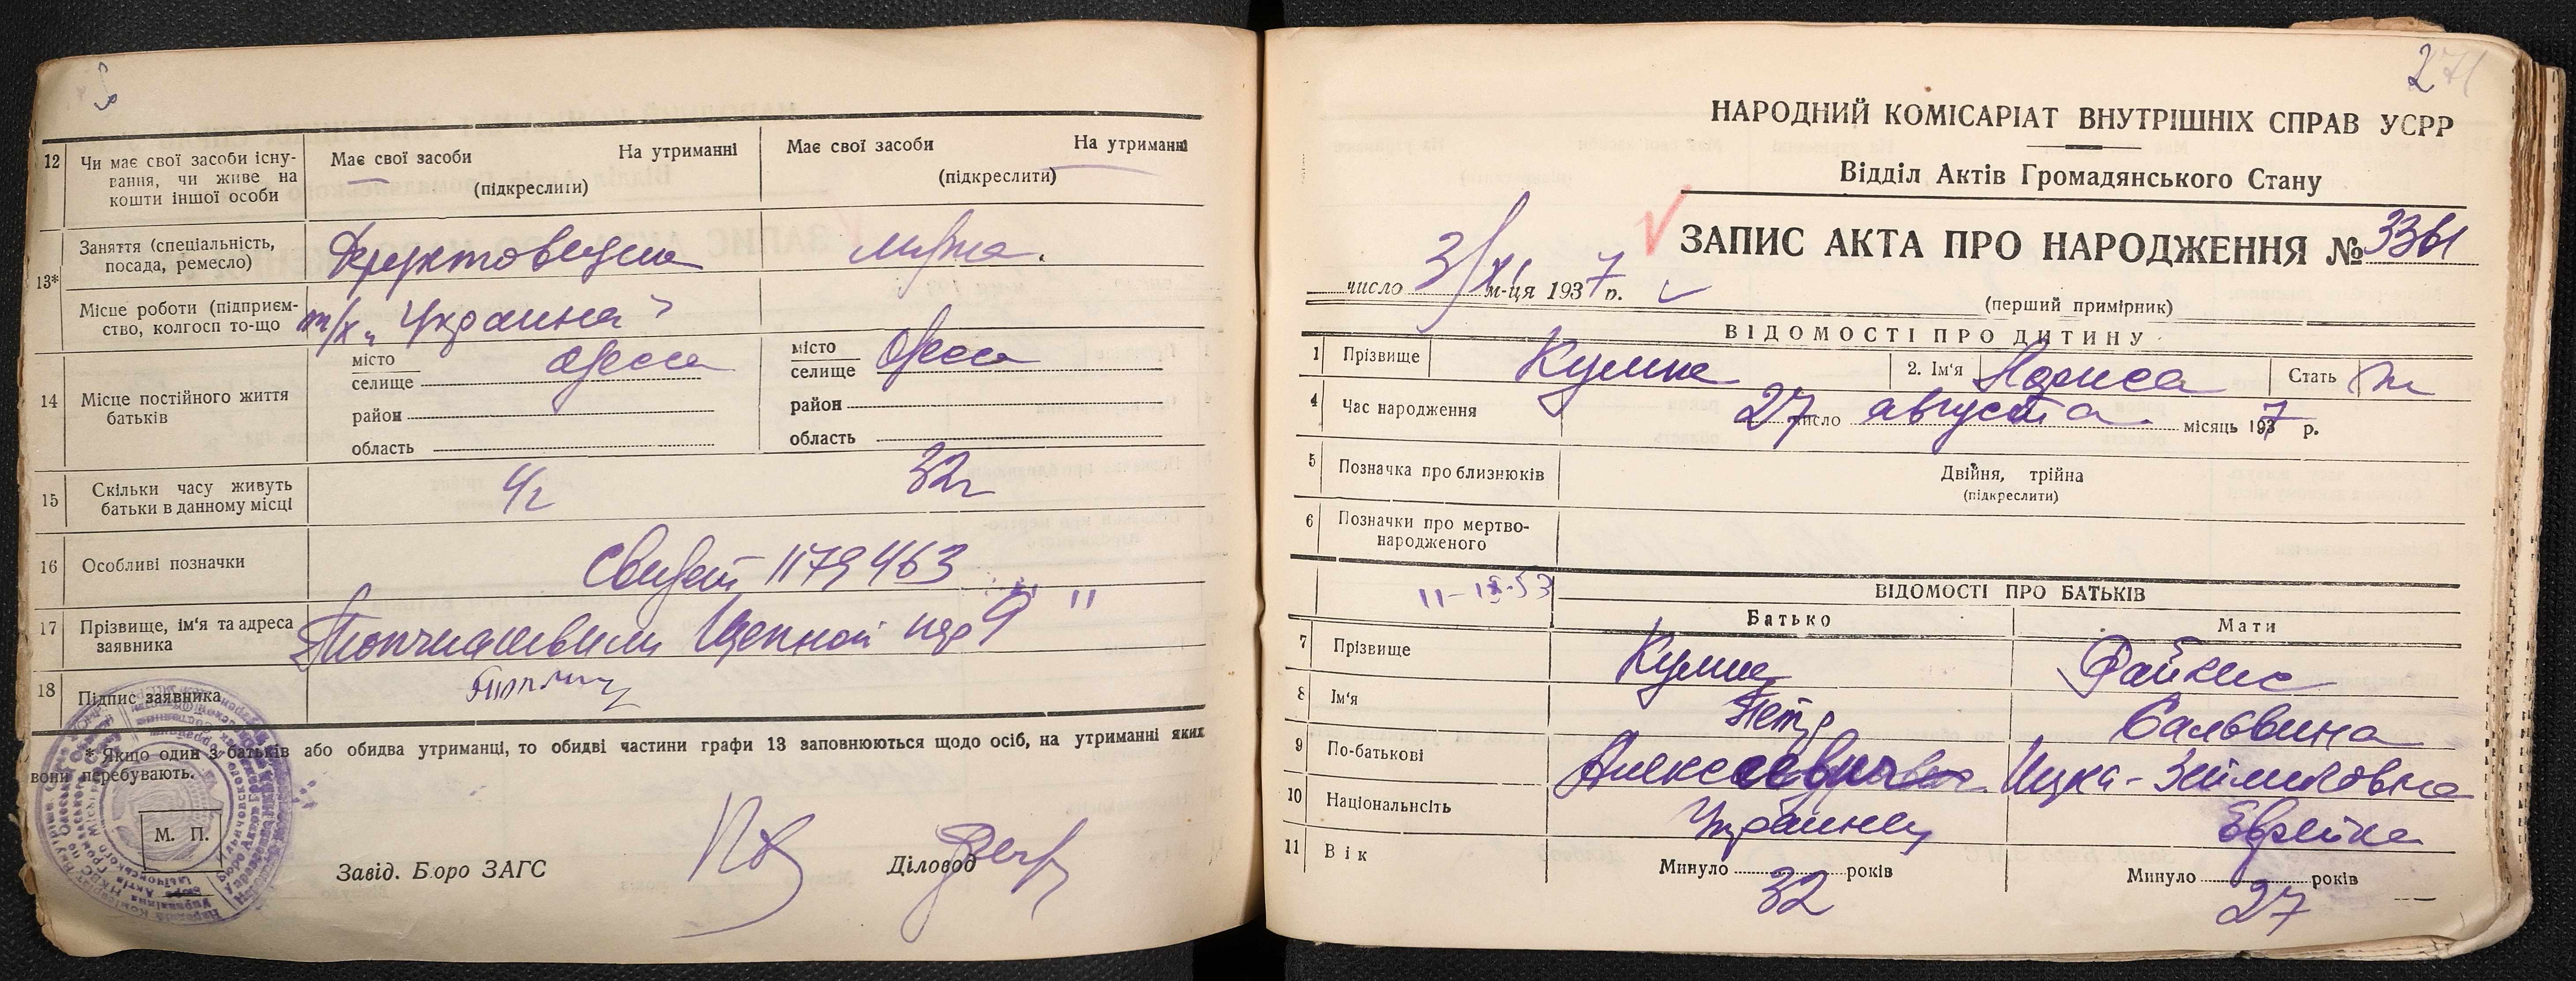 12 Чи має свої засоби існу-
вання, чи живе на
кошти іншої особи
Має свої засоби На утриманні
(підкреслити)
Має свої засоби На утриманні
(підкреслити)
13*
Заняття (спеціальність,
посада, ремесло)
Місце роботи (підприєм-
ство, колгосп то-що
т/х „Украина”
14 Місце постійного життя
батьків
місто Одесса
селище
район
область
місто Одесса
селище
район
область
15 Скільки часу живуть
батьки в данному місці
4г 32г
16 Особливі позначки
Свидет 1179463
17 Прізвище, ім'я та адреса
заявника
Цепной пер 9
18 Підпис заявника
* Якщо один з батьків або обидва утриманці, то обидві частини графи 13 заповнюються щодо осіб, на утриманні яких
вони перебувають.
М. П.
Завід. Бюро ЗАГС Діловод
2
НАРОДНИЙ КОМІСАРІАТ ВНУТРІШНІХ СПРАВ УСРР
Відділ Актів Громадянського Стану
ЗАПИС АКТА ПРО НАРОДЖЕННЯ № 3361
число 3/XI м-ця 1937 р.
(перший примірник)
ВІДОМОСТІ ПРО ДИТИНУ
1 Прізвище Кулиш 2. Ім'я Лариса Стать ж
4 Час народження 27 число августа місяць 1937 р.
5 Позначка про близнюків Двійня, трійна
(підкреслити)
6 Позначки про мертво-
народженого
11-IX-53
ВІДОМОСТІ ПРО БАТЬКІВ
Батько Мати
7 Прізвище Кулиш Файнис
8 Ім'я Петр Сальвина
9 По-батькові Ицка-Зельмановна
10 Національнсіть Украинец Еврейка
11 Вік Минуло 32 років Минуло 27 років